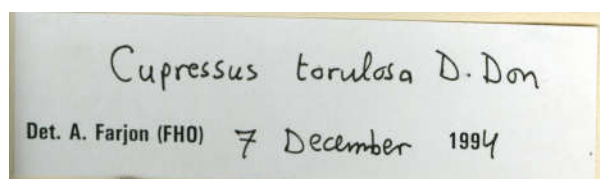 Cupressus torulosa D. Don
Det. A. Farjon (FHO) 7 December 1994